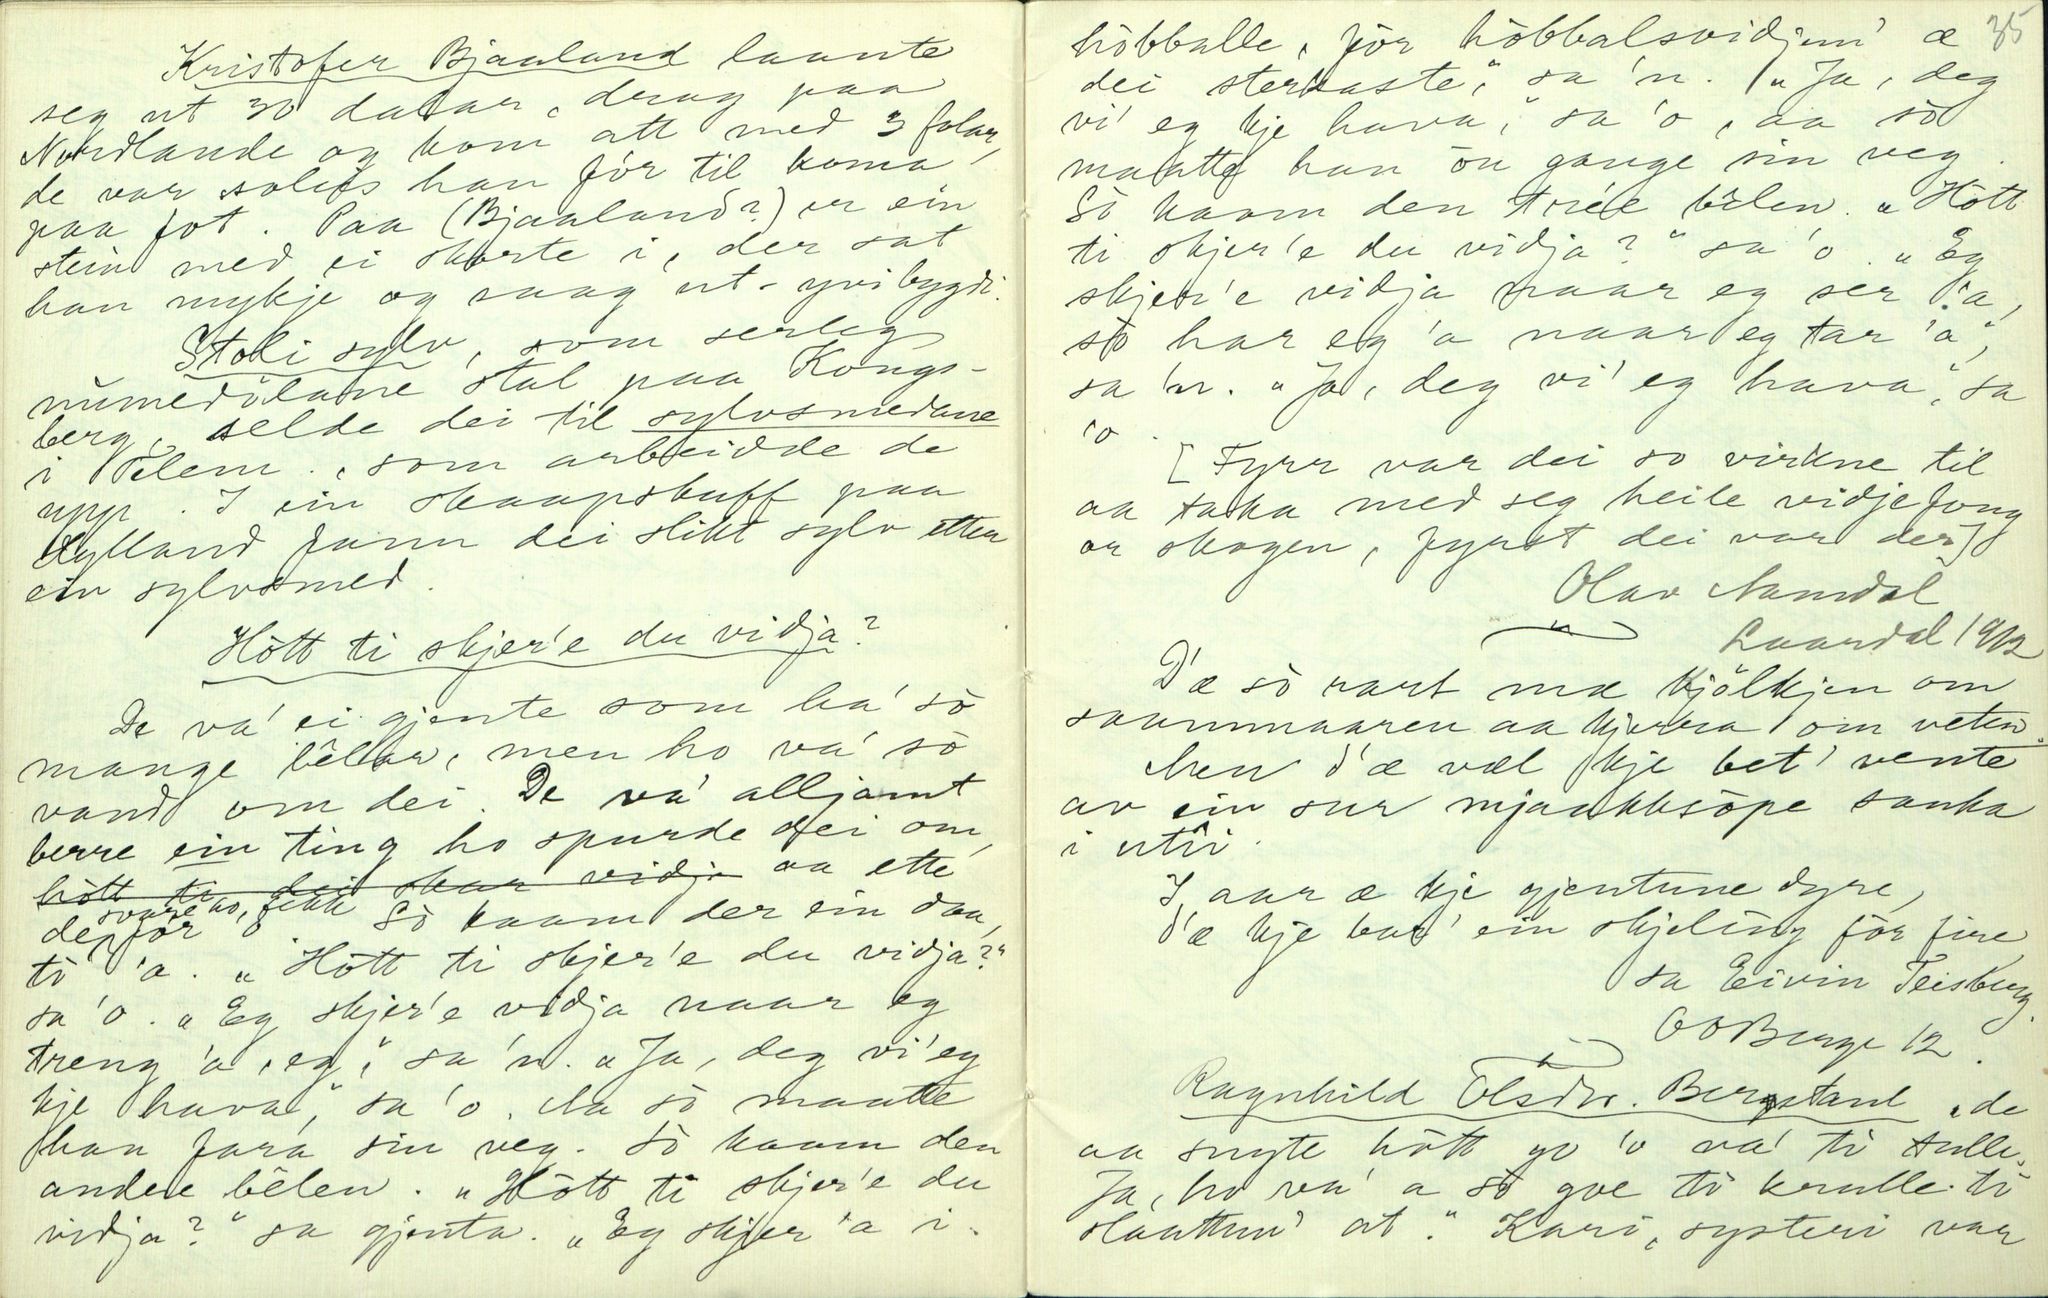 Kristofer Bjaaland laante
seg ut 30 dalar, drog paa
Nordlande og kom att med 3 folar,
de var soleis han fór til koma
paa fot. Paa (Bjaaland?) er ein
stein med ei skorte i, der sat
han mykje og saag ut-yvi bygdi.
Stoli sylv, som serleg
numedölane stal paa Kongs-
berg, selde dei til sylvsmedane
i Telem., som arbeidde de
upp. I ein skaapskuff paa
Kylland fann dei slikt sylv etter
ein sylvsmed.
Hòtt ti skjer'e du vidja?
De va' ei gjente som ha' sò
mange bêlar, men ho va' sò
vand om dei. De va' alljamt
berre ein ting ho spurde dei om,
hòtt ti dei skar vidja aa ette
svare ho fekk
de fòr 'o Sò kaam der ein daa,
tì 'a. „Hòtt ti skjer'e du vidja?"
sa 'o. „Eg skjer'e vidja naar eg
treng 'a, eg," sa 'n. „Ja, deg vi' eg
kje hava," sa 'o. Aa sò maatte
han fara sin veg. Sò kaam den
andre bêlen. „Hòtt ti skjer'e du
vidja?" sa gjenta. „Eg skjer 'a i
35
hòbballe, fòr hòbbalsvidjun' æ
dei sterkaste," sa 'n. „Ja, deg
vi' eg kje hava," sa 'o, aa sò
maatte han òu gange sin veg.
Sò kaam den trée bêlen. „Hòtt
ti skjer'e du vidja?" sa 'o. „Eg
skjer'e vidja naar eg ser 'a,
sò har eg 'a naar eg tar 'a",
sa 'n. „Ja, deg vi' eg hava," sa
'o.
[Fyrr var dei so virkne til
aa taka med seg heile vidjefong
or skogen, fyrst dei var der]
Olav Namdal
Laardal 1912
D'æ sò rart mæ kjölkjen om
saammaaren aa kjerra om veten.
Men d'æ væl kje bet' vente
av ein sur mjaakksòpe sanka
i utîi.
I aar æ kje gjentune dyre,
d'æ kje bar' ein skjeling fòr fire,
sa Eivin Teisburg.
O O Berge 12.
Ragnhild Olsdtr. Bergstaul, „de
aa snyte hòtt go 'o va' ti tulle.
Ja, ho va' a sò goe ti krulle ti
slaattun' at." Kari, systeri var